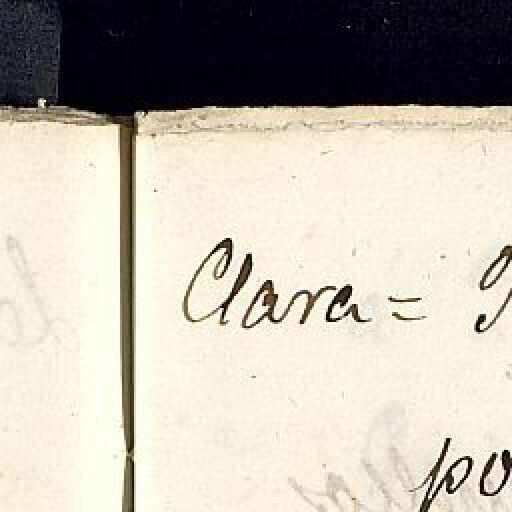 Clara =
po